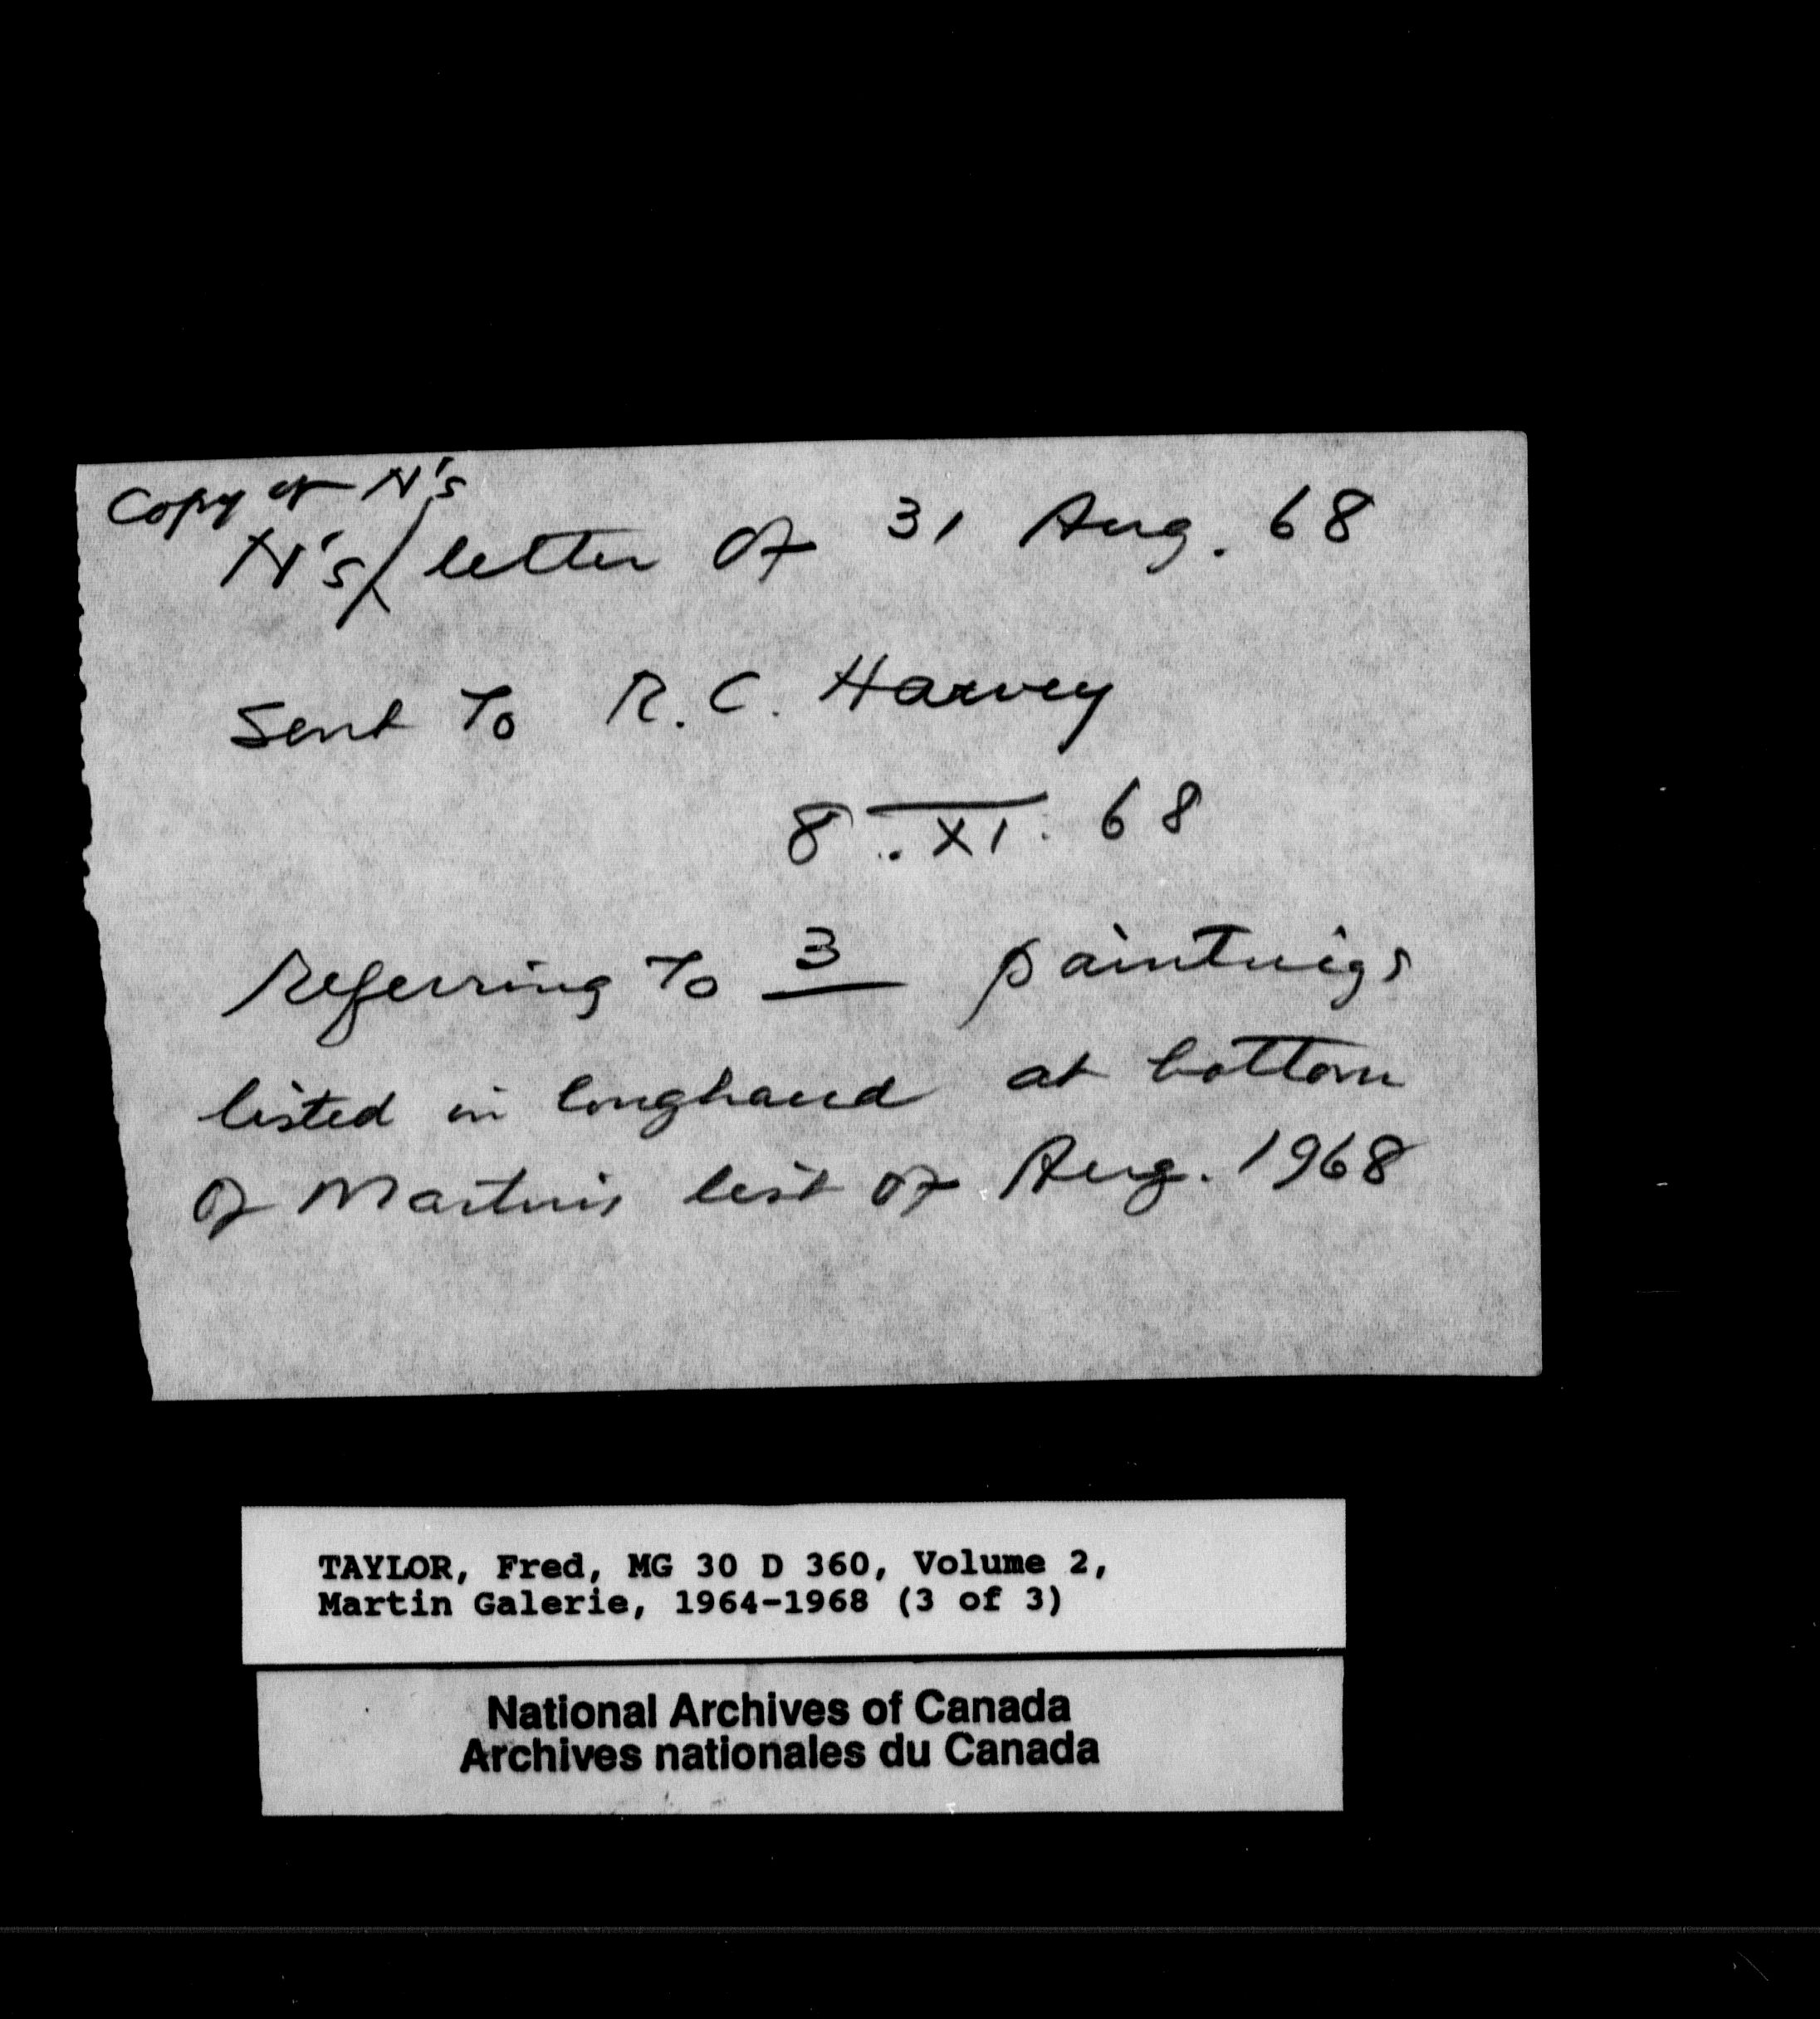 Copy of N's
N's/ letter of 31 Aug. 68
Sent To R.C. Harvey
8.XI.68
Referring To 3 paintings
listed in longhand at bottom
of Martin's list of Aug. 1968
TAYLOR, Fred, MG 30 D 360, Volume 2,
Martin Galerie, 1964-1968 (3 of 3)
National Archives of Canada
Archives nationales du Canada